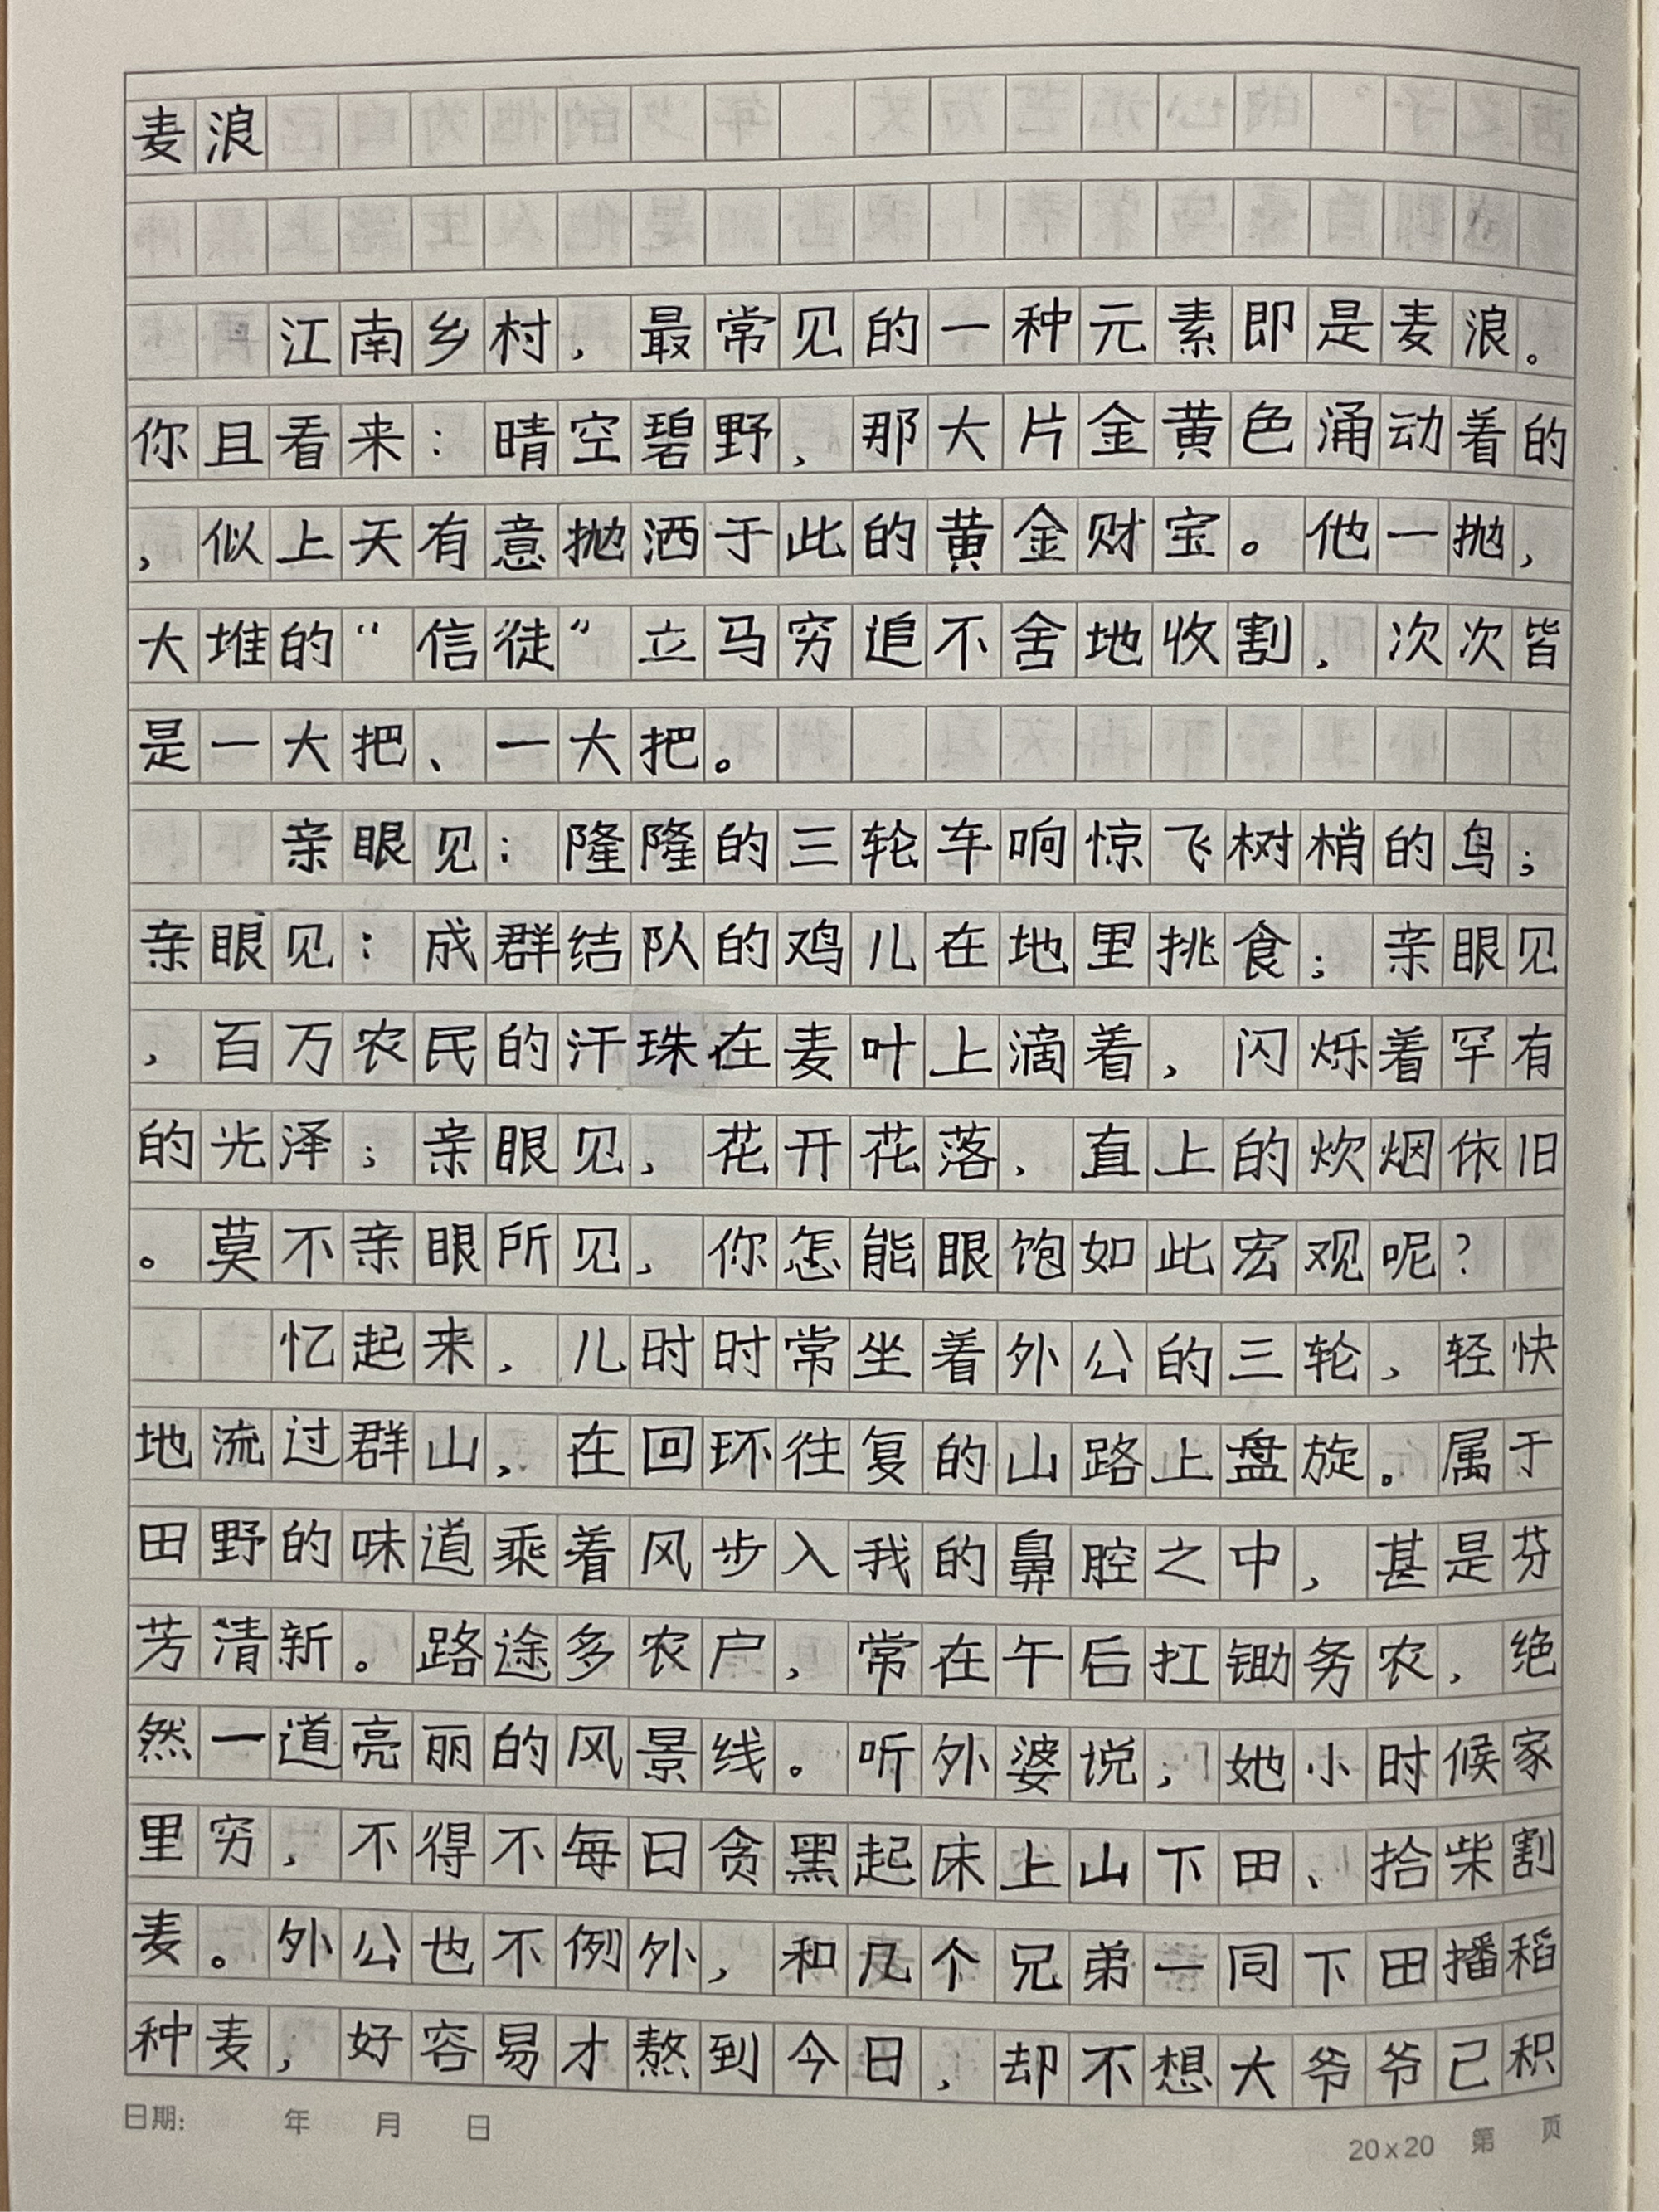 麦浪
江南乡村，最常见的一种元素即是麦浪。
你且看来：晴空碧野，那大片金黄色涌动着的
，似上天有意抛洒于此的黄金财宝。他一抛，
大堆的“信徒”立马穷追不舍地收割，次次皆
是一大把、一大把。
亲眼见：隆隆的三轮车响惊飞树梢的鸟；
亲眼见：成群结队的鸡儿在地里挑食；亲眼见
，百万农民的汗珠在麦叶上滴着，闪烁着罕有
的光泽；亲眼见，花开花落，直上的炊烟依旧
。莫不亲眼所见，你怎能眼饱如此宏观呢？
忆起来，儿时时常坐着外公的三轮，轻快
地流过群山，在回环往复的山路上盘旋。属于
田野的味道乘着风步入我的鼻腔之中，甚是芬
芳清新。路途多农户，常在午后扛锄务农，绝
然一道亮丽的风景线。听外婆说，她小时候家
里穷，不得不每日贪黑起床上山下田、拾柴割
麦。外公也不例外，和几个兄弟一同下田播稻
种麦，好容易才熬到今日，却不想大爷爷己积
日期： 年 月 日
20x20 第 页